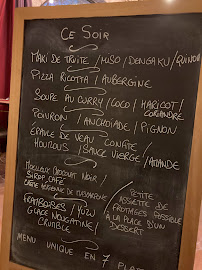 CE SOIR
MAKI DE TRUITE / MISO / DENGAKU / QUINOA
PIZZA RICOTTA / AUBERGINE
SOUPE AU CURRY / COCO / HARICOT /
CORIANDRE
POIVRON / ANCHOÏADE / PIGNON
ÉPAULE DE VEAU CONFITE /
HOUMOUS / SAUCE VIERGE / AMANDE
MOELLEUX CHOCOLAT NOIR /
SIROP CAFÉ
CRÈME MASCARPONE
FRAMBOISES / YUZU
GLACE NOUGATINE /
CRUMBLE
PETITE
ASSIETTE DE
FROMAGES POSSIBLE
À LA PLACE D'UN
DESSERT
MENU UNIQUE EN 7 PLATS